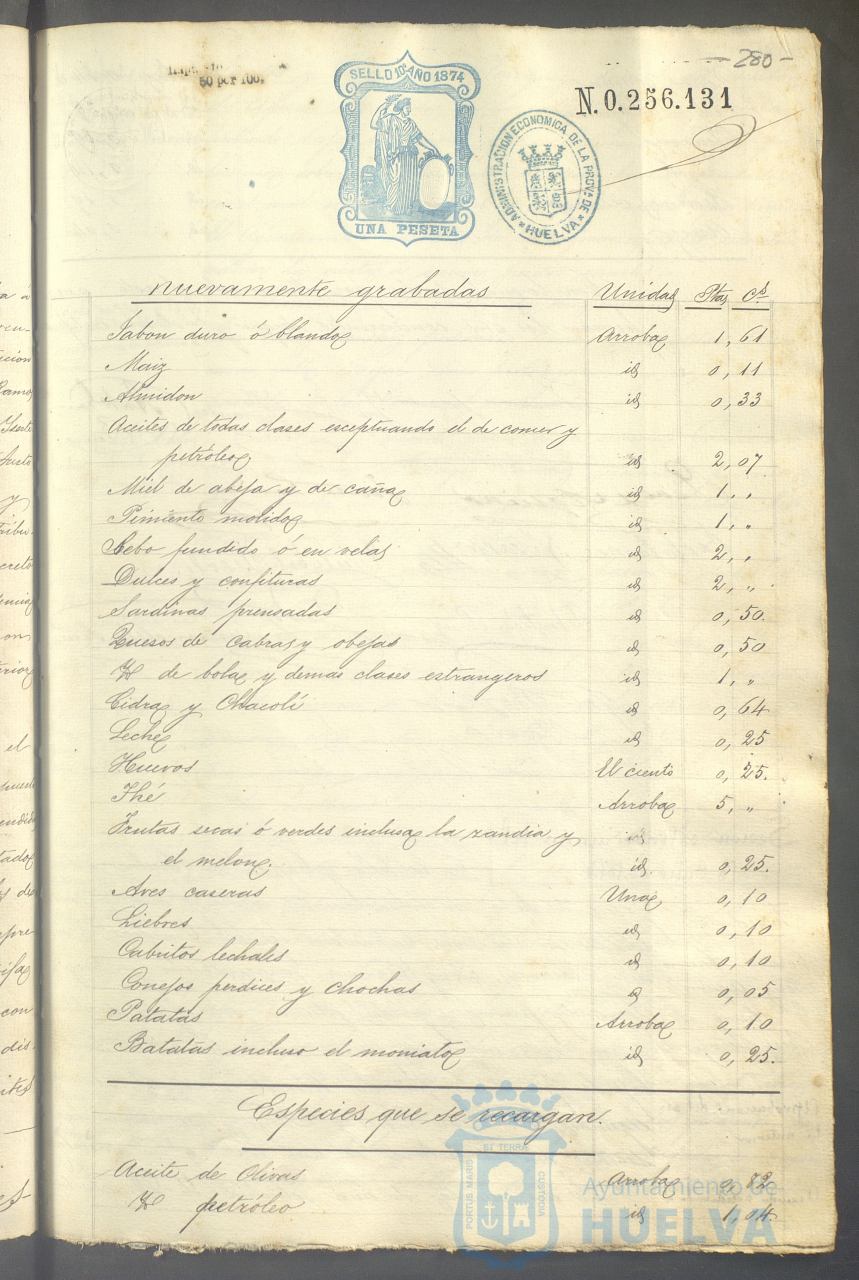 -280-
50 por 100
SELLO 10º AÑO 1874
UNA PESETA
N. 0.256.131
ADMINISTRACION ECONOMICA DE LA PROVA DE
HUELVA
nuevamente grabadas Unidad Ptas Cs
Jabon duro ó blando Arroba 1,61
Maiz id 0,11
Almidon id 0,33
Aceites de todas clases esceptuando el de comer y
petróleo id 2,07
Miel de abeja y de caña id 1, "
Pimiento molido id 1, "
Sebo fundido ó en velas id 2, "
Dulces y confituras id 2, "
Sardinas prensadas id 0,50.
Quesos de cabras y obejas id 0,50
Yd de bola y demas clases estrangeros id 1, "
Cidra y Chacolí id 0,64
Leche id 0,25
Huevos El ciento 0,25.
Thé Arroba 5, "
Frutas secas ó verdes inclusa la zandia y
el melon. id. 0,25.
Aves caseras Una 0,10
Liebres id 0,10
Cabritos lechales id 0,10
Conejos perdices y chochas id 0,05
Patatas Arroba 0,10
Batatas incluso el moniato id 0,25.
Especies que se recargan.
Aceite de Olivas Arroba 0,82
Yd petróleo id 1,04.
PORTUS MARIS
ET TERRÆ
CUSTODIA
Ayuntamiento de
HUELVA